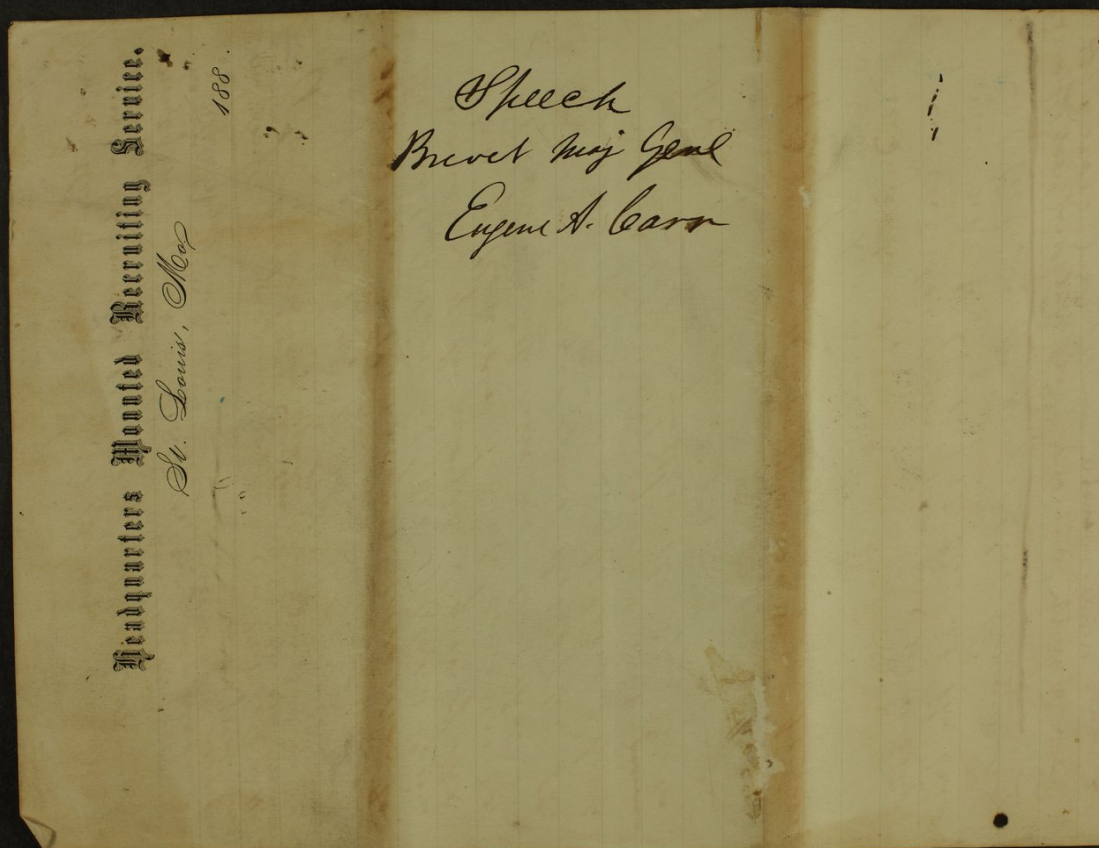 Headquarters Mounted Recruiting Service.
St. Louis, Mo,
188 .
Speech
Brevet Maj Genl
Eugene A. Carr